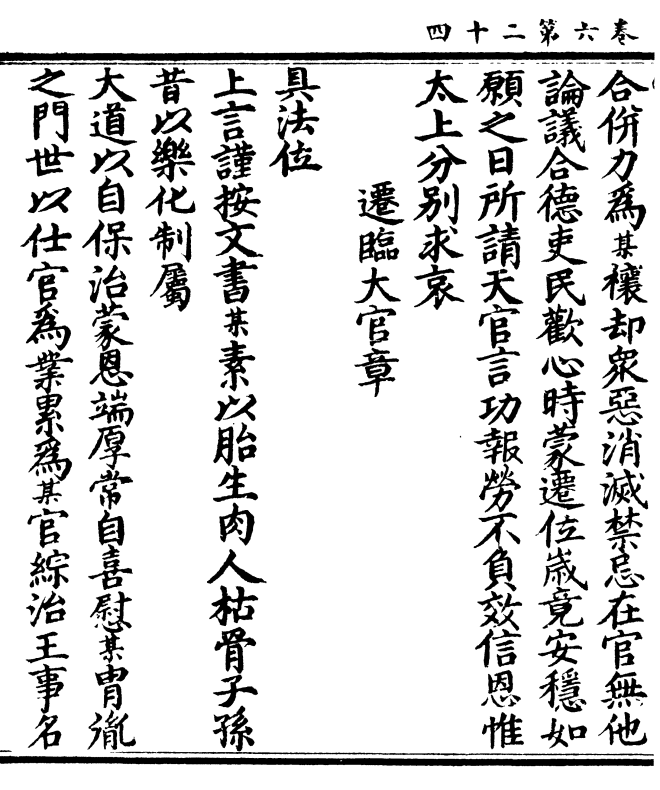 卷六第二十四
合併力爲某禳却衆惡消滅禁忌在官無他
論議合德吏民歡心時蒙遷位歲竟安穩如
願之日所請天官言功報勞不負效信恩惟
太上分别求哀
遷臨大官章
具法位
上言謹按文書某素以胎生肉人枯骨子孫
昔以樂化制屬
大道以自保治蒙恩端厚常自喜慰某胄胤
之門世以仕官爲業累爲某官綜治王事名